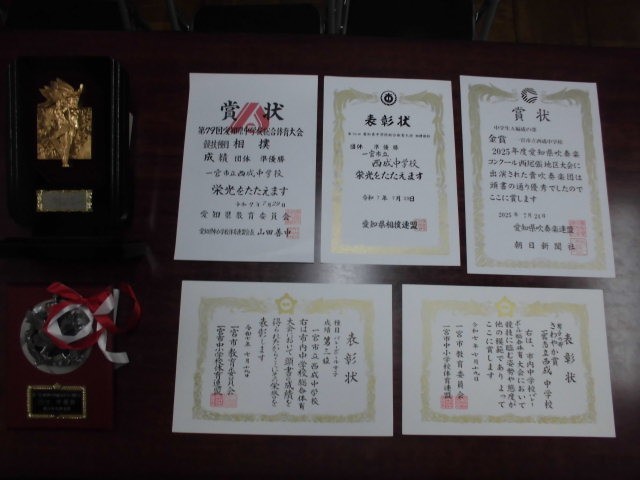 賞状
第79回愛知県中学校総合体育大会
競技種目 相撲
成績 団体 準優勝
一宮市立西成中学校
栄光をたたえます
愛知県教育委員会
山田善中
表彰状
団体 準優勝
一宮市立
西成中学校
栄光をたたえます
愛知県相撲連盟
賞状
金賞
一宮市立西成中学校
2025年度愛知県吹奏楽
コンクール西尾張地区大会に
出演された貴吹奏楽団は
頭書の通り優秀でしたので
ここに賞します
2025年7月24日
愛知県吹奏楽連盟
朝日新聞社
表彰状
成績 第三位
一宮市立西成中学校
右は市内中学校総合体育
大会において頭書の成績を
表彰します
一宮市教育委員会
一宮市中小学校体育連盟
表彰状
さわやか賞
西成中学校
右は、市内中学校バレー
ボール総合体育大会において
競技に臨む姿勢や態度が
他の模範であり、よって
ここに賞します
令和七年七月十九日
一宮市教育委員会
一宮市中小学校体育連盟